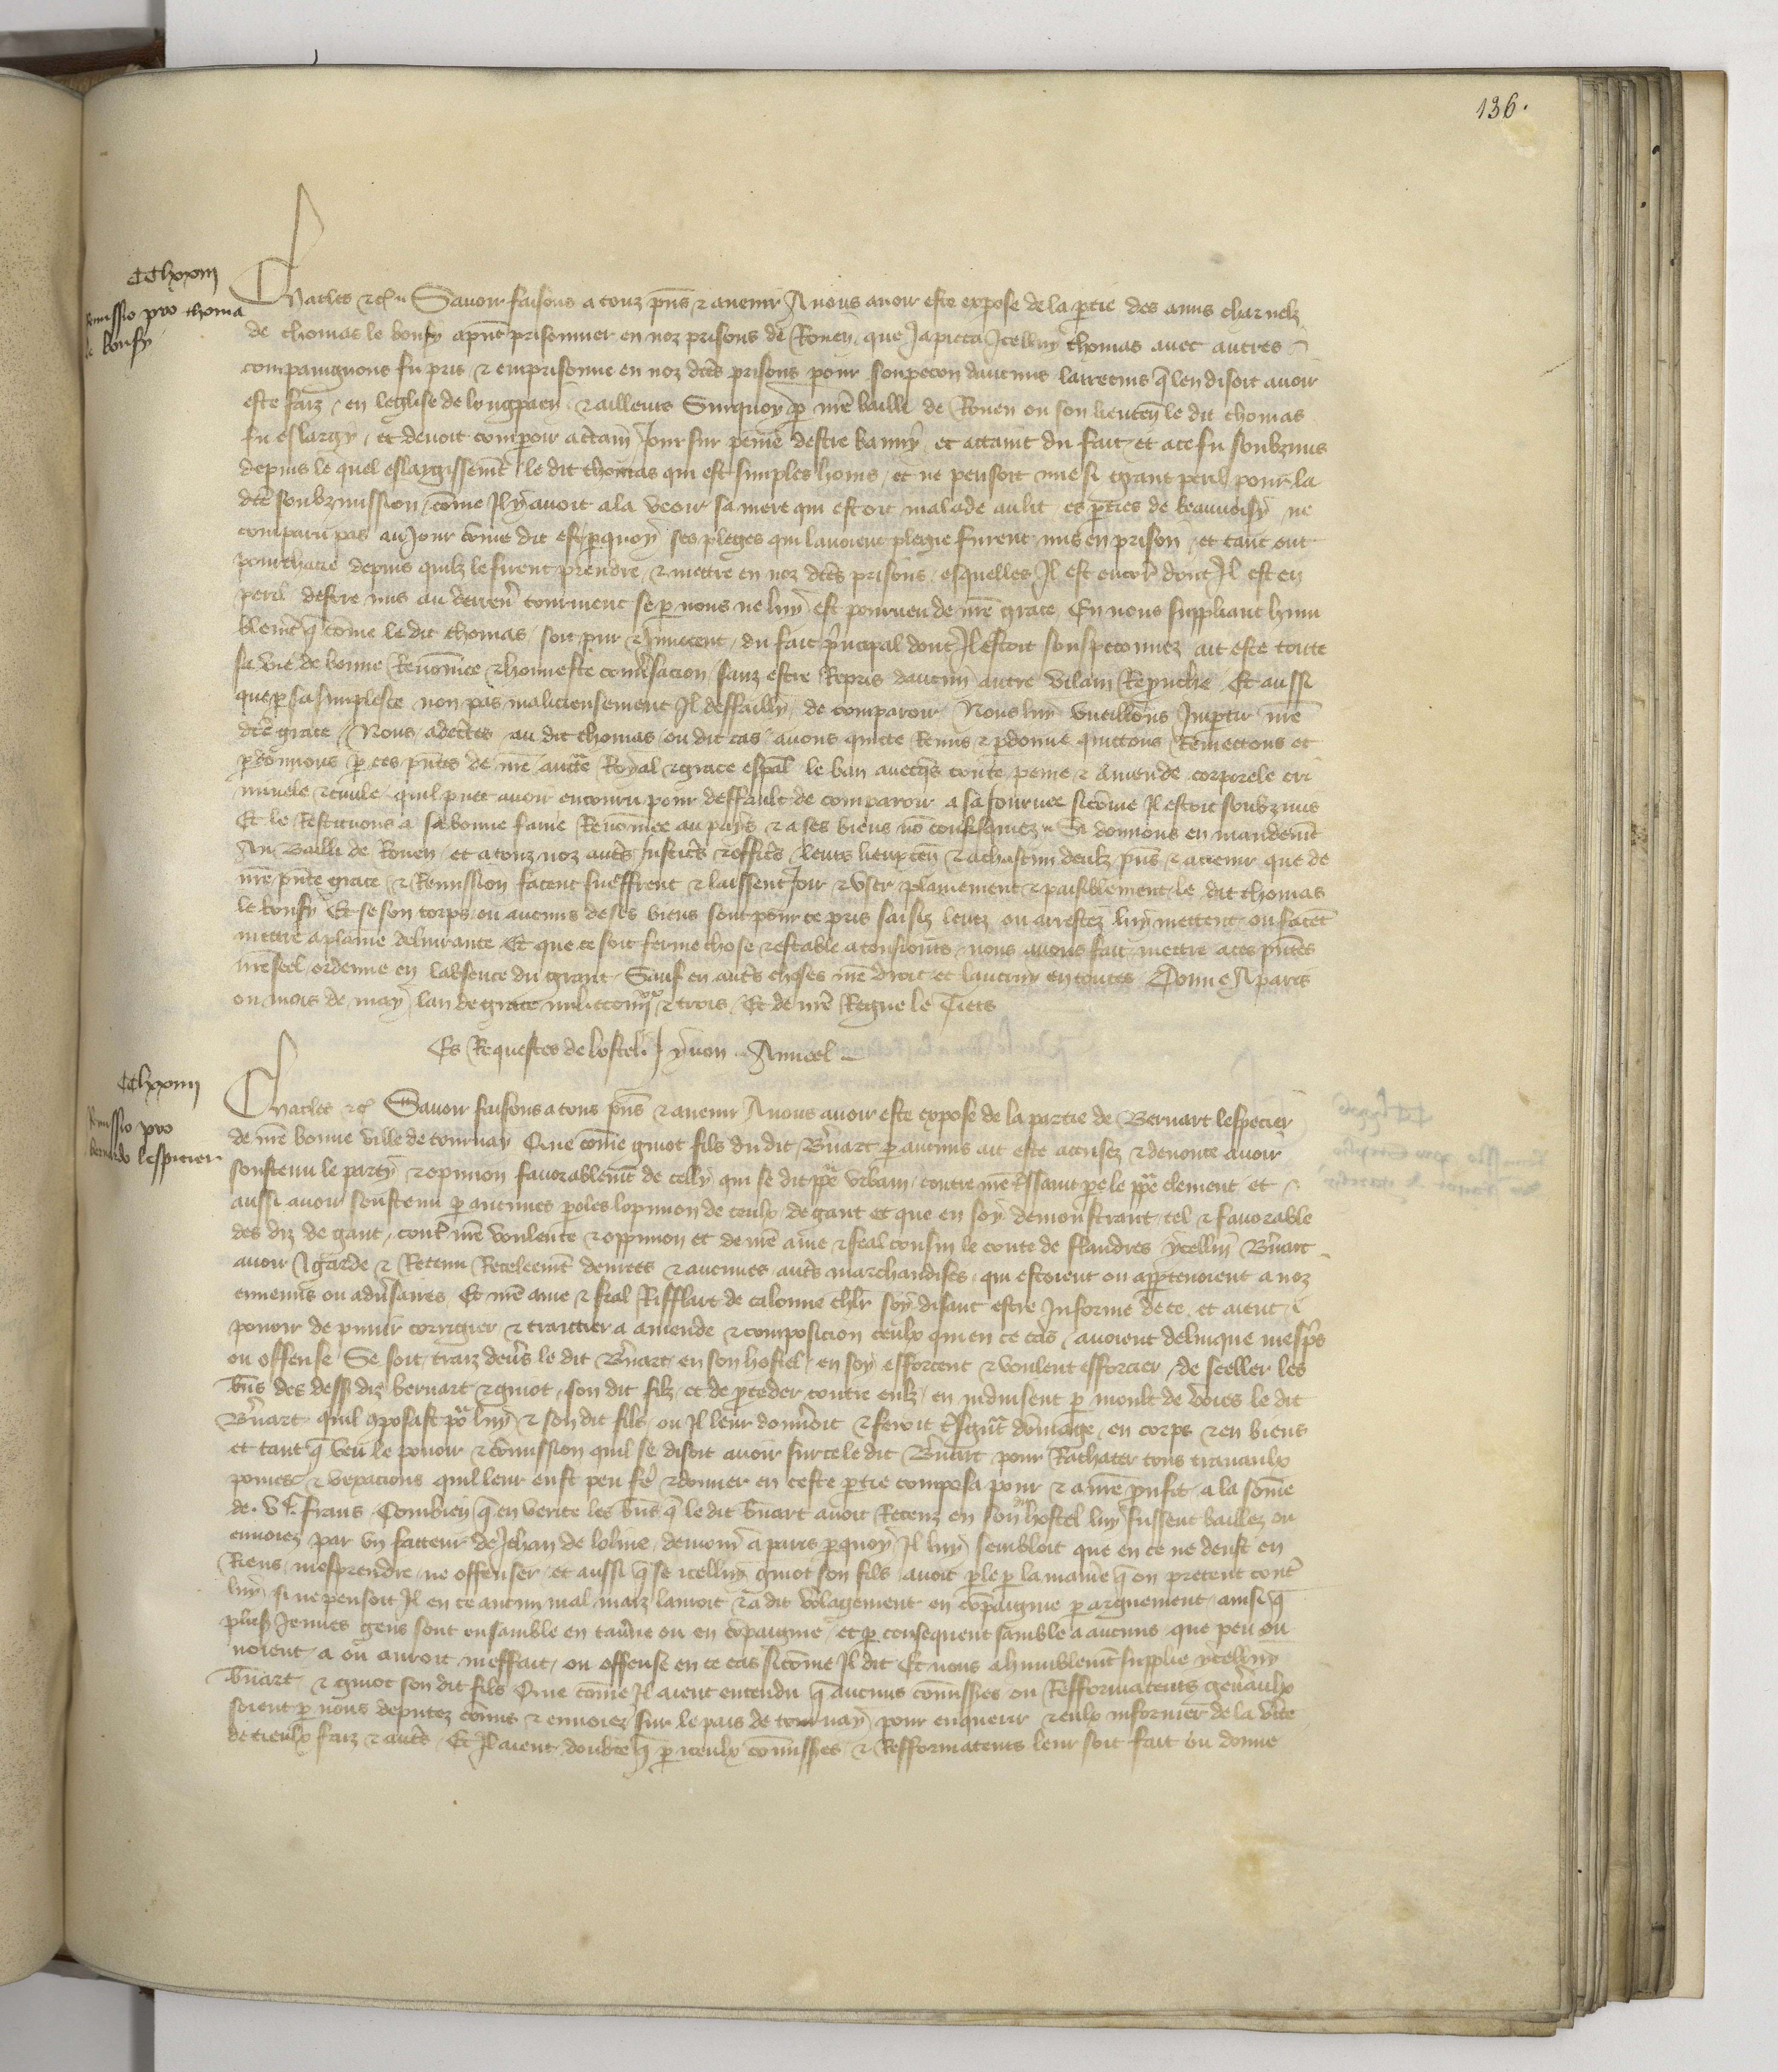 136.
CClxxiii
Remissio pro thoma
le konsy
Charles etc. Savoir faisons a touz pns et avenir A nous avoir este expose de la ptie des amis charnelz
de thomas le konsy apnt prisonnier en noz prisons de Rouen que Japieca Icelluy thomas avec autres
compaignons fu pris et emprisonne en noz dctes prisons pour soupecon daucuns larrecins q len disoit avoir
este faiz en leglise de longpaen et ailleurs Surquoy p nre bailli de Rouen ou son lieuten le dit thomas
fu eslargy et devoit compoir a ctain Jour sur peine destre banny et attaint du fait et ace fu soubzmis
depuis le quel eslargissemt le dit thomas qui est simples homs et ne pensoit mie si grant peril pour la
dcte soubzmission come Il y avoit ala veoir sa mere qui estoit malade au lit es pties de beauvoisy ne
comparu pas au Jour come dit est pquoy ses pleges qui lavoient plegie furent mis en prison et tant ont
pourchacie depuis quilz le firent prendre et mettre en noz dctes prisons esquelles Il est encor dont Il est en
peril destre mis au derren tourment se p nous ne luy est pourveu de nre grace En nous suppliant hum
blemt q come le dit thomas soit pur et Innocent du fait pncipal dont Il estoit souspeconnez ait este toute
sa vie de bonne Renomee et honneste convsacion sanz estre Repris daucun autre vilain Reprouche Et aussi
que p sa simplesce non pas malicieusement Il deffailly de comparoir Nous luy vueillons Impartir nre
dcte grace Nous adectes au dit thomas ou dit cas avons quitte Remis et pdonne quittons Remettons et
pdonnons p ces pntes de nre aucte Royal et grace espal le ban avecqs toute peine et Amende corporele cri
minele et civile quil puet avoir encouru pour deffault de comparoir a sa Journee sicome Il estoit soubzmis
Et le Restituons a sa bonne fame Renomee au pays et a ses biens no confisquez Si donnons en mandemt
Au Bailli de Rouen et a touz noz autes Justices et offices leurs lieuxten et achascun deulz pns et avenir que de
nre pnte grace et Remission facent sueffrent et laissent Joir et user plainement et paisiblement le dit thomas
le konsy Et se son corps ou aucuns de ses biens sont pour ce pris saisiz levez ou arrestez luy mettent ou facet
mettre aplaine delivrance Et que ce soit ferme chose et estable atousiours nous avons fait mettre aces pntes
nre seel ordenne en labsence du grant Sauf en autes choses nre droit et lautruy en toutes Donne A paris
ou mois de may lan de grace mil ccc iiiixx et trois Et de nre Regne le Tiers
Es Requestes de lostel J yvon Anneel
CClxxiiii
Remissio pro
bernardo lespicier
Charles etc Savoir faisons a tous pns et avenir A nous avoir este expose de la partie de Bernart lespecier
de nre bonne ville de tournay Que come guiot fils du dit Bnart p aucuns ait este accusez et denonce avoir
soustenu le party et opinion favorablemt de celly qui se dit ppe Urbain contre nre tssaint pe le ppe clement et
aussi avoir soustenu p aucunes poles lopinion de ceulx de gant et que en soy demonstrant tel et favorable
des diz de gant cont nre voulente et oppinion et de nre ame et feal cousin le conte de flandres ycelluy Bnart
avoir Agarde et Retenu Receleemt denrees et aucunes autes marchandises qui estoient ou apptenoient a noz
ennemis ou advsaires Et nre ame et feal Rifflart de calonne chlr soy disant estre Informe de ce et aient
povoir de punir corrigier et traittier a amende et composicion ceulx qui en ce cas avoient delinque mespris
ou offense Se soit traiz devs le dit Bnart en son hostel en soy efforcent et voulent efforcier de seeller les
bns des dessusdiz bernart et guiot son dit filz et de pceder contre eulz en induisent p moult de voies le dit
Bnart quil qposast por luy et son dit fils ou Il leur donroit et feroit tsgnt domage en corps et en biens
et tant q veu le povoir et comission quil se disoit avoir sur ce le dit Bnart pour Rachater tous travaulx
poines et vexacions quil leur eust peu fe et donner en ceste ptie composa pour et a nre prufit a la some
de vc frans Combien q en verite les bns q le dit bnart avoit Recenz en son hostel luy fussent baillez ou
envoiez par un facteur de Jehan de lolme demour a paris pquoy Il luy sembloit que en ce ne deust en
Riens mesprendre ne offenser et aussi q se icelluy guiot son fils avoit ple p la manie q on pretent cont
luy si ne pensoit Il en ce aucun mal maiz lavoit et a dit volagement en compaignie p arguement ainsi q
plus Jennes gens sont ensamble en tavne ou en compaignie et p consequent samble a aucuns que peu ou
noient a ou auroit meffait ou offense en ce cas sicome Il dit Et nous a humblemt supplie ycelluy
bnart et guiot son dit fils Que come Il aient entendu q aucuns comisses ou Refformateurs gnaulx
soient p nous deputez comis et envoiez sur le pais de tournay pour enquerir et eulx informer de la vite
de tieulx faiz et autes Et Il aient doubte q p iceulx comisses et Refformateurs leur soit fait ou donne